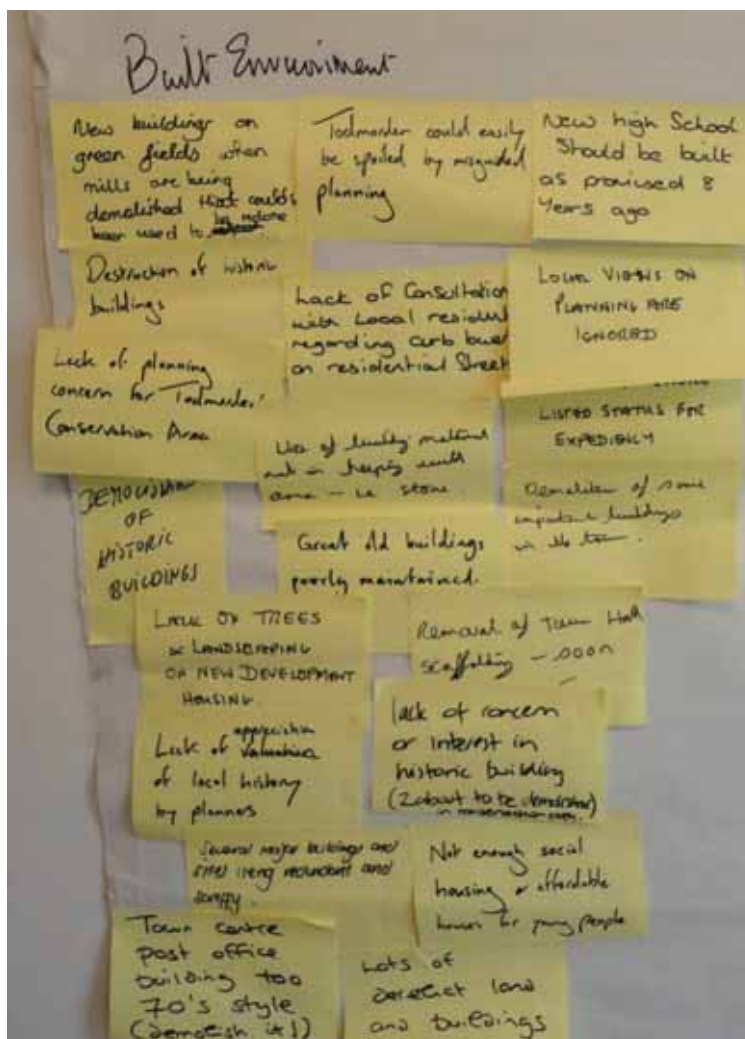 Built Environment
New buildings on
green fields when
mills are being
demolished that could
been used to
Todmorden could easily
be spoiled by misguided
planning
New high School
Should be built
as promised 8
Years ago
Destruction of historic
buildings
Lack of Consultation
with Local resident
regarding carb
on residential Street
LOCAL VIEWS ON
PLANNING ARE
IGNORED
Lack of planning
concern for Todmorden
Conservation Area
LISTED STATUS FOR
EXPEDIENCY
Use of building material
not in keeping with
area - i.e. stone.
DEMOLISHING
OF
HISTORIC
BUILDINGS
Demolition of some
important buildings
in the town.
Great old buildings
poorly maintained.
LACK OF TREES
& LANDSCAPING
ON NEW DEVELOPMENT
HOUSING.
Removal of Town Hall
scaffolding - soon
Lack of appreciation
of local history
by planners
lack of concern
or interest in
historic building
(2 about to be demolished)
in conservation area.
Several major buildings and
sites lying redundant and
scruffy.
Not enough social
housing or affordable
houses for young people
Town centre
post office
building too
70's style
(demolish it!)
Lots of
derelict land
and buildings